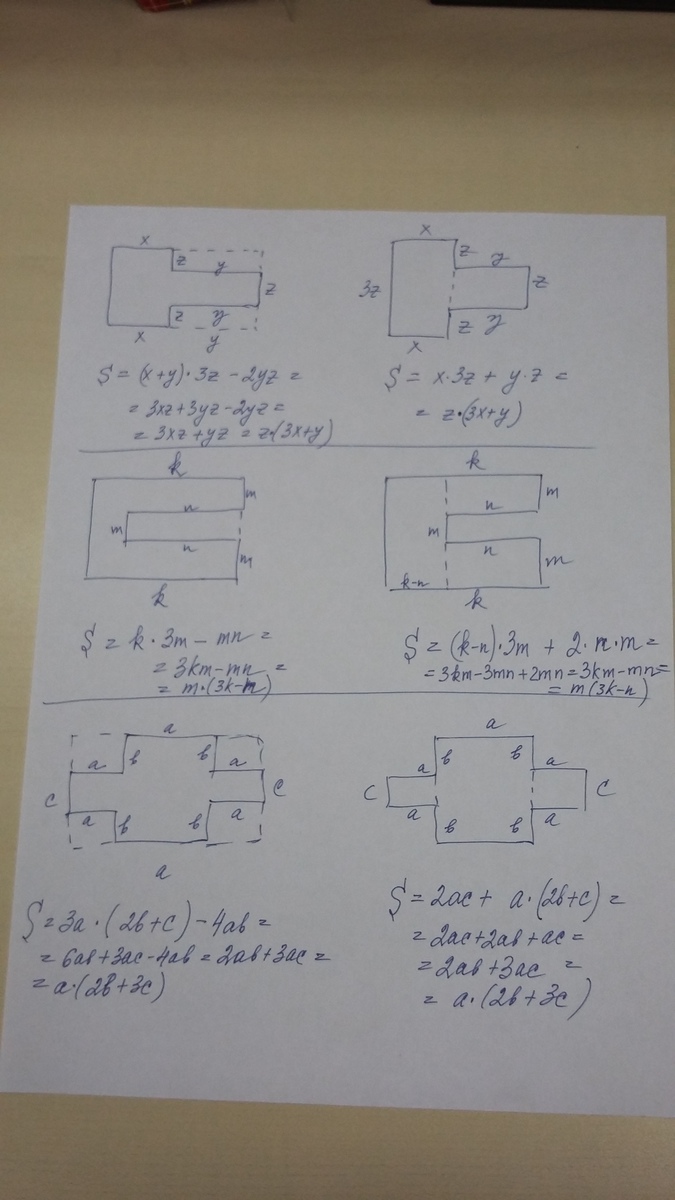 x
z
y
z
z y
x
y
S = (x+y)·3z - 2yz =
= 3xz+3yz-2yz =
= 3xz+yz = z·(3x+y)
x
z
y
3z
z
z y
x
S = x·3z + y·z =
= z·(3x+y)
k
m
n
m
n
m
k
S = k·3m - mn =
= 3km-mn =
= m·(3k-n)
k
m
n
m
n
m
k-n
k
S = (k-n)·3m + 2·n·m =
= 3km-3mn+2mn=3km-mn=
= m(3k-n)
a
a b b a
c c
a b b a
a
S = 3a·(2b+c)-4ab =
= 6ab+3ac-4ab = 2ab+3ac =
= a·(2b+3c)
a
a b b a
c c
a b b a
S = 2ac + a·(2b+c) =
= 2ac+2ab+ac =
= 2ab+3ac =
= a·(2b+3c)